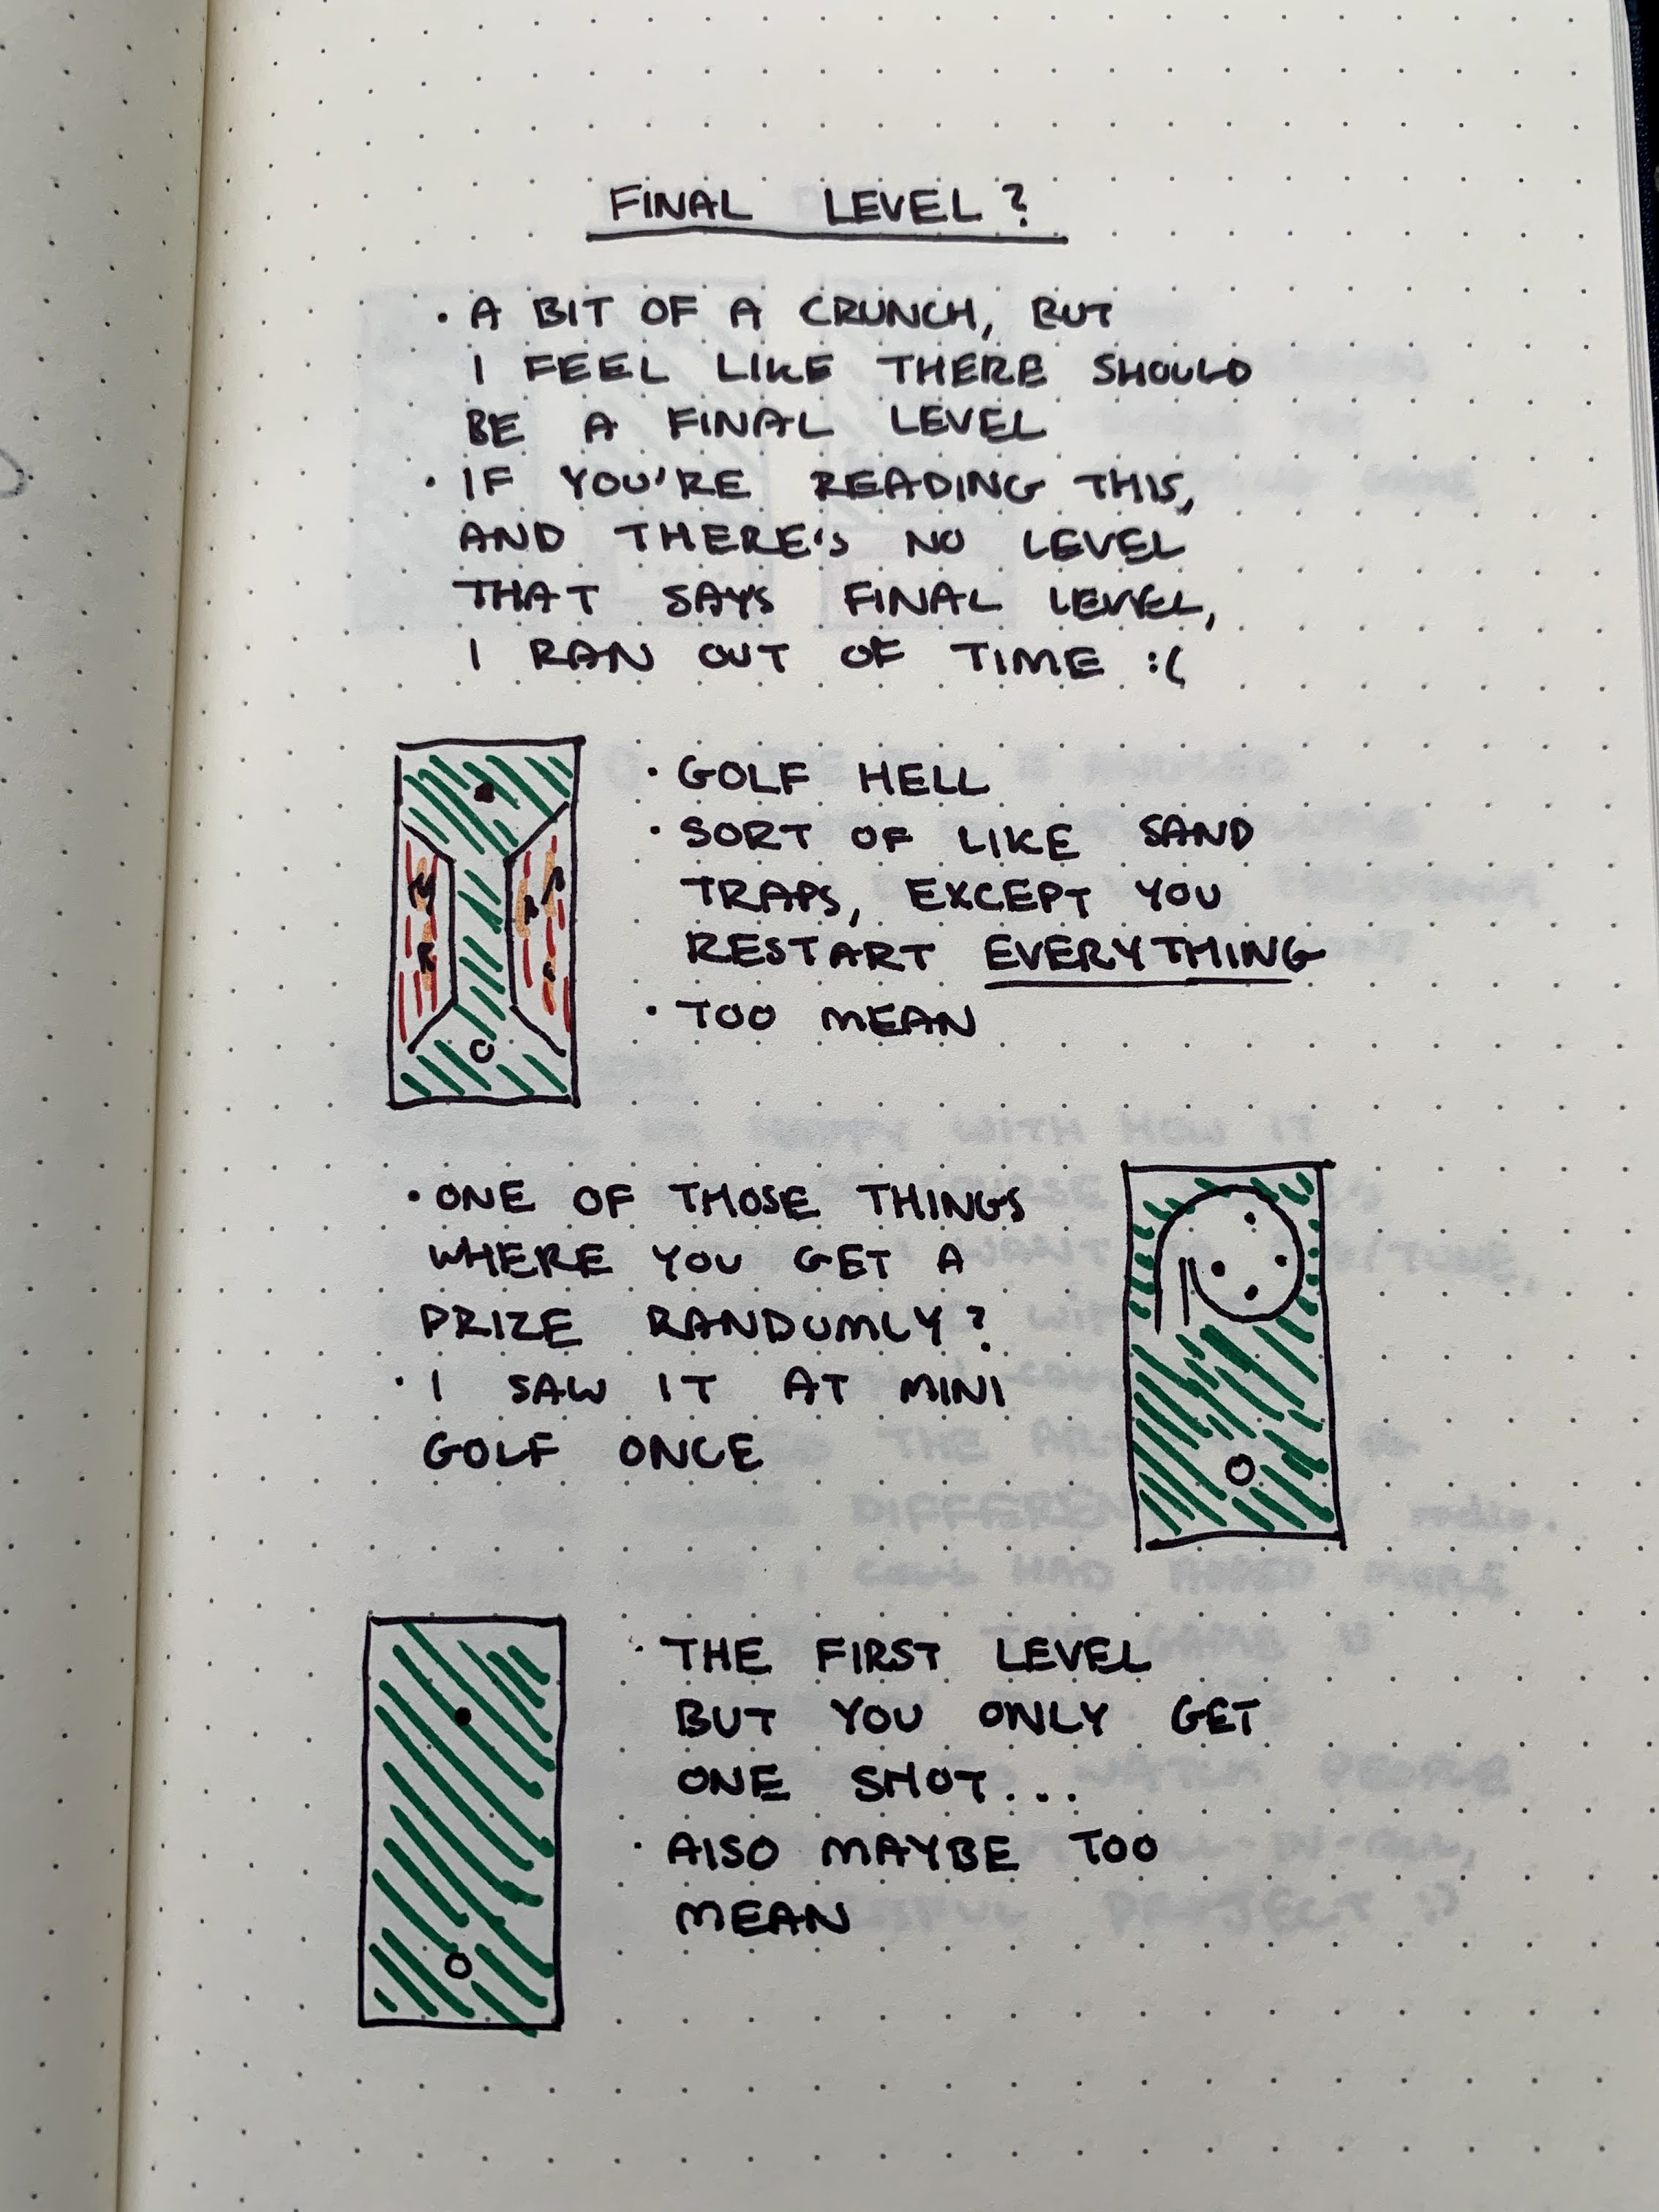 FINAL LEVEL?
• A BIT OF A CRUNCH, BUT
I FEEL LIKE THERE SHOULD
BE A FINAL LEVEL
• IF YOU'RE READING THIS,
AND THERE'S NO LEVEL
THAT SAYS FINAL LEVEL,
I RAN OUT OF TIME :(
• GOLF HELL
• SORT OF LIKE SAND
TRAPS, EXCEPT YOU
RESTART EVERYTHING
• TOO MEAN
• ONE OF THOSE THINGS
WHERE YOU GET A
PRIZE RANDOMLY?
• I SAW IT AT MINI
GOLF ONCE
• THE FIRST LEVEL
BUT YOU ONLY GET
ONE SHOT...
• ALSO MAYBE TOO
MEAN